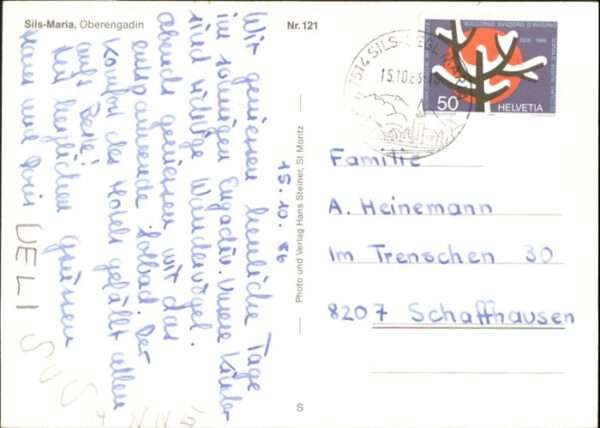 Sils-Maria, Oberengadin
Nr. 121
15.10.86
Wir geniessen herrliche Tage
im sonnigen Engadin. Unsere Kinder
sind richtige Wandervögel.
abends geniessen wir das
entspannende Solbad. Der
Komfort des Hotels gefällt allen
aufs Beste!
Mit herzlichen Grüssen
Hans und Doris
UELI
Photo und Verlag Hans Steiner, St Moritz
S
7514 SILS-SEGL MARIA
15.10.86
50
HELVETIA
Familie
A. Heinemann
Im Trenschen 30
8207 Schaffhausen